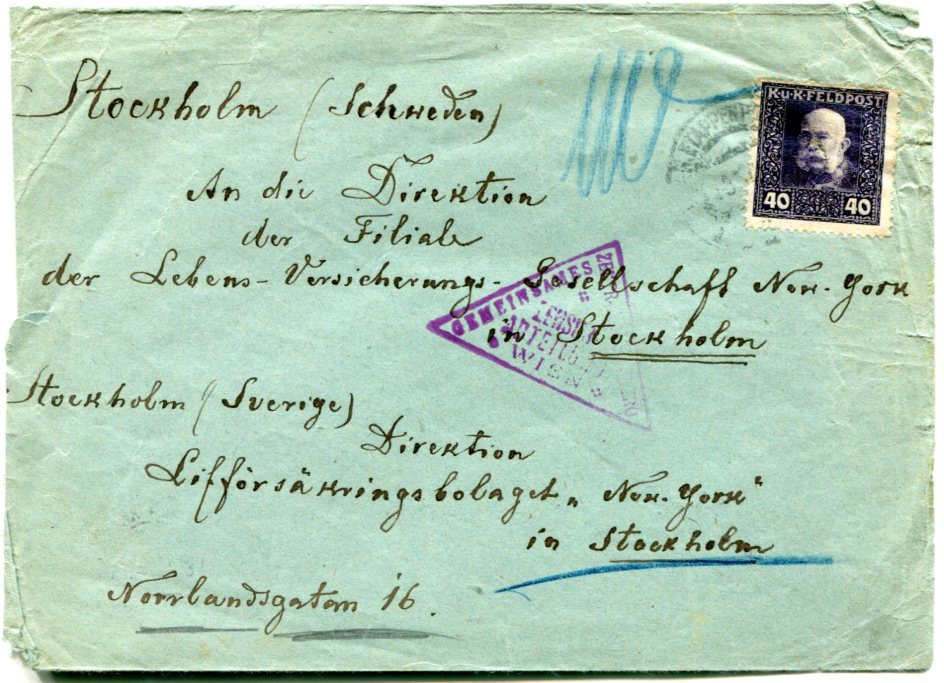 Stockholm (Schweden)
K.u.K.FELDPOST
40 40
An die Direktion
der Filiale
der Lebens-Versicherungs-Gesellschaft New-York
in Stockholm
GEMEINSAMES
ZENSUR
ABTEILUNG
WIEN
Stockholm (Sverige)
Direktion
Lifförsäkringsbolaget „New-York"
in Stockholm
Norrlandsgatan 16.